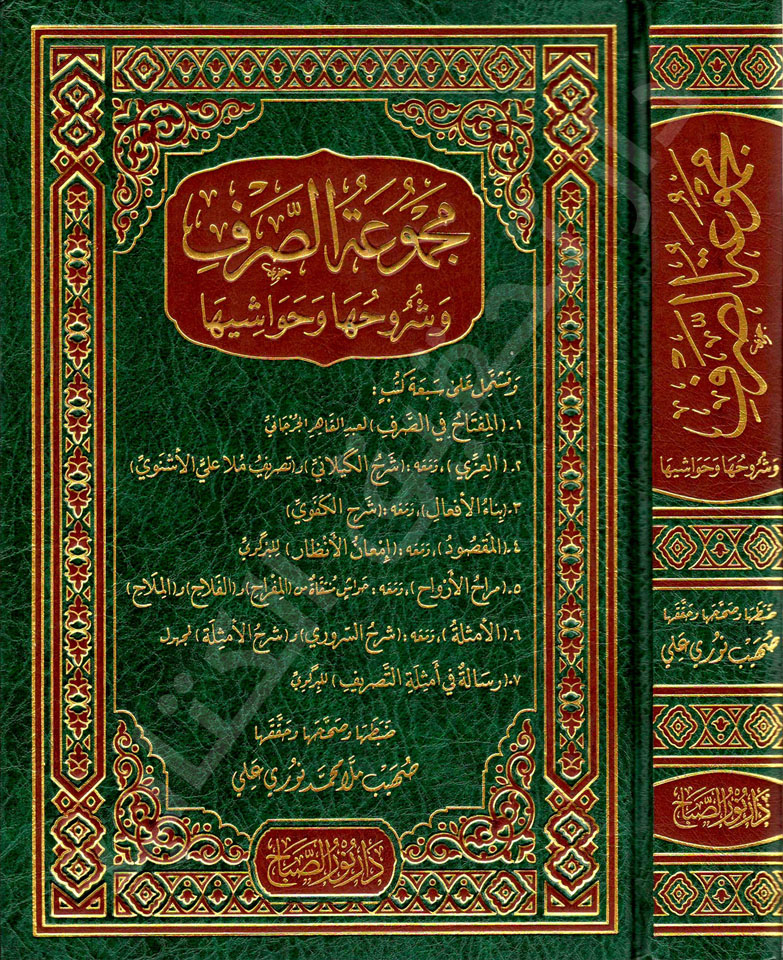 مَجْمُوعَةُ الصَّرْفِ
وَشُرُوحُهَا وَحَوَاشِيهَا
وَتَشْتَمِلُ عَلَىٰ سَبْعَةِ كُتُبٍ:
١. (المِفْتَاحُ فِي الصَّرْفِ) لعبد القاهر الجُرْجَانِيِّ
٢. (العِزِّي)، وَمَعَه: (شَرْحُ الكَيْلَانِيِّ) و(تصريفُ مُلا عليٍّ الأُشْنَوِيِّ)
٣. (بِنَاءُ الأَفْعَالِ)، وَمَعَه: (شَرْحُ الكَفَوِيِّ)
٤. (المَقْصُودُ)، وَمَعَه: (إِمْعَانُ الأَنْظَارِ) لِلْبِرْكِوِيِّ
٥. (مراحُ الأَرْوَاحِ)، وَمَعَه: حَوَاشٍ مُنْتَقَاةٌ من (المِفْرَاحِ) و(الفَلَاحِ) و(المِلَاحِ)
٦. (الأَمْثِلَةُ)، وَمَعَه: (شَرْحُ السَّرُورِيِّ) و(شَرْحُ الأَمْثِلَةِ) لمجهول
٧. (رِسَالَةٌ فِي أَمْثِلَةِ التَّصْرِيفِ) لِلْبِرْكِوِيِّ
ضَبَطَهَا وَصَحَّحَهَا وَحَقَّقَهَا
صُهَيْب مُلَّا مُحَمَّد نُورِي عَلِي
دَارُ نُورِ الصَّبَاحِ
مَجْمُوعَةُ الصَّرْفِ
وَشُرُوحُهَا وَحَوَاشِيهَا
ضَبَطَهَا وَصَحَّحَهَا وَحَقَّقَهَا
صُهَيْب نُورِي عَلِي
دَارُ نُورِ الصَّبَاحِ